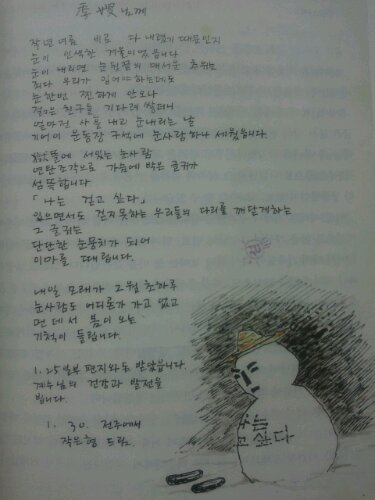 季嫂님께
작년여름 비로 다 내렸기 때문인지
눈이 인색한 겨울이었습니다
눈이 내리면 눈 뒤끝의 매서운 추위는
죄다 우리가 입어야 하는데도
눈 한번 찐하게 안오나
젊은 친구들 기다려 쌓더니
얼마전 사흘 내고 눈내리는 날
기어이 운동장 구석에 눈사람 하나 세웠습니다
뜰에 서있는 눈사람
연탄조각으로 가슴에 박은 글귀가
섬뜩합니다
「나는 걷고 싶다」
있으면서도 걷지못하는 우리들의 다리를 깨닫게하는
그 글귀는
단단한 눈뭉치가 되어
이마를 때립니다.
내일 모레가 2월 초하루
눈사람도 어디론가 가고 없고
먼 데서 봄이 오는
기척이 들립니다.
1. 25일부 편지와 돈 받았습니다
계수님의 건강과 발전을
빕니다.
1. 30. 전주에서
작은형 드림.
나는
걷고 싶다